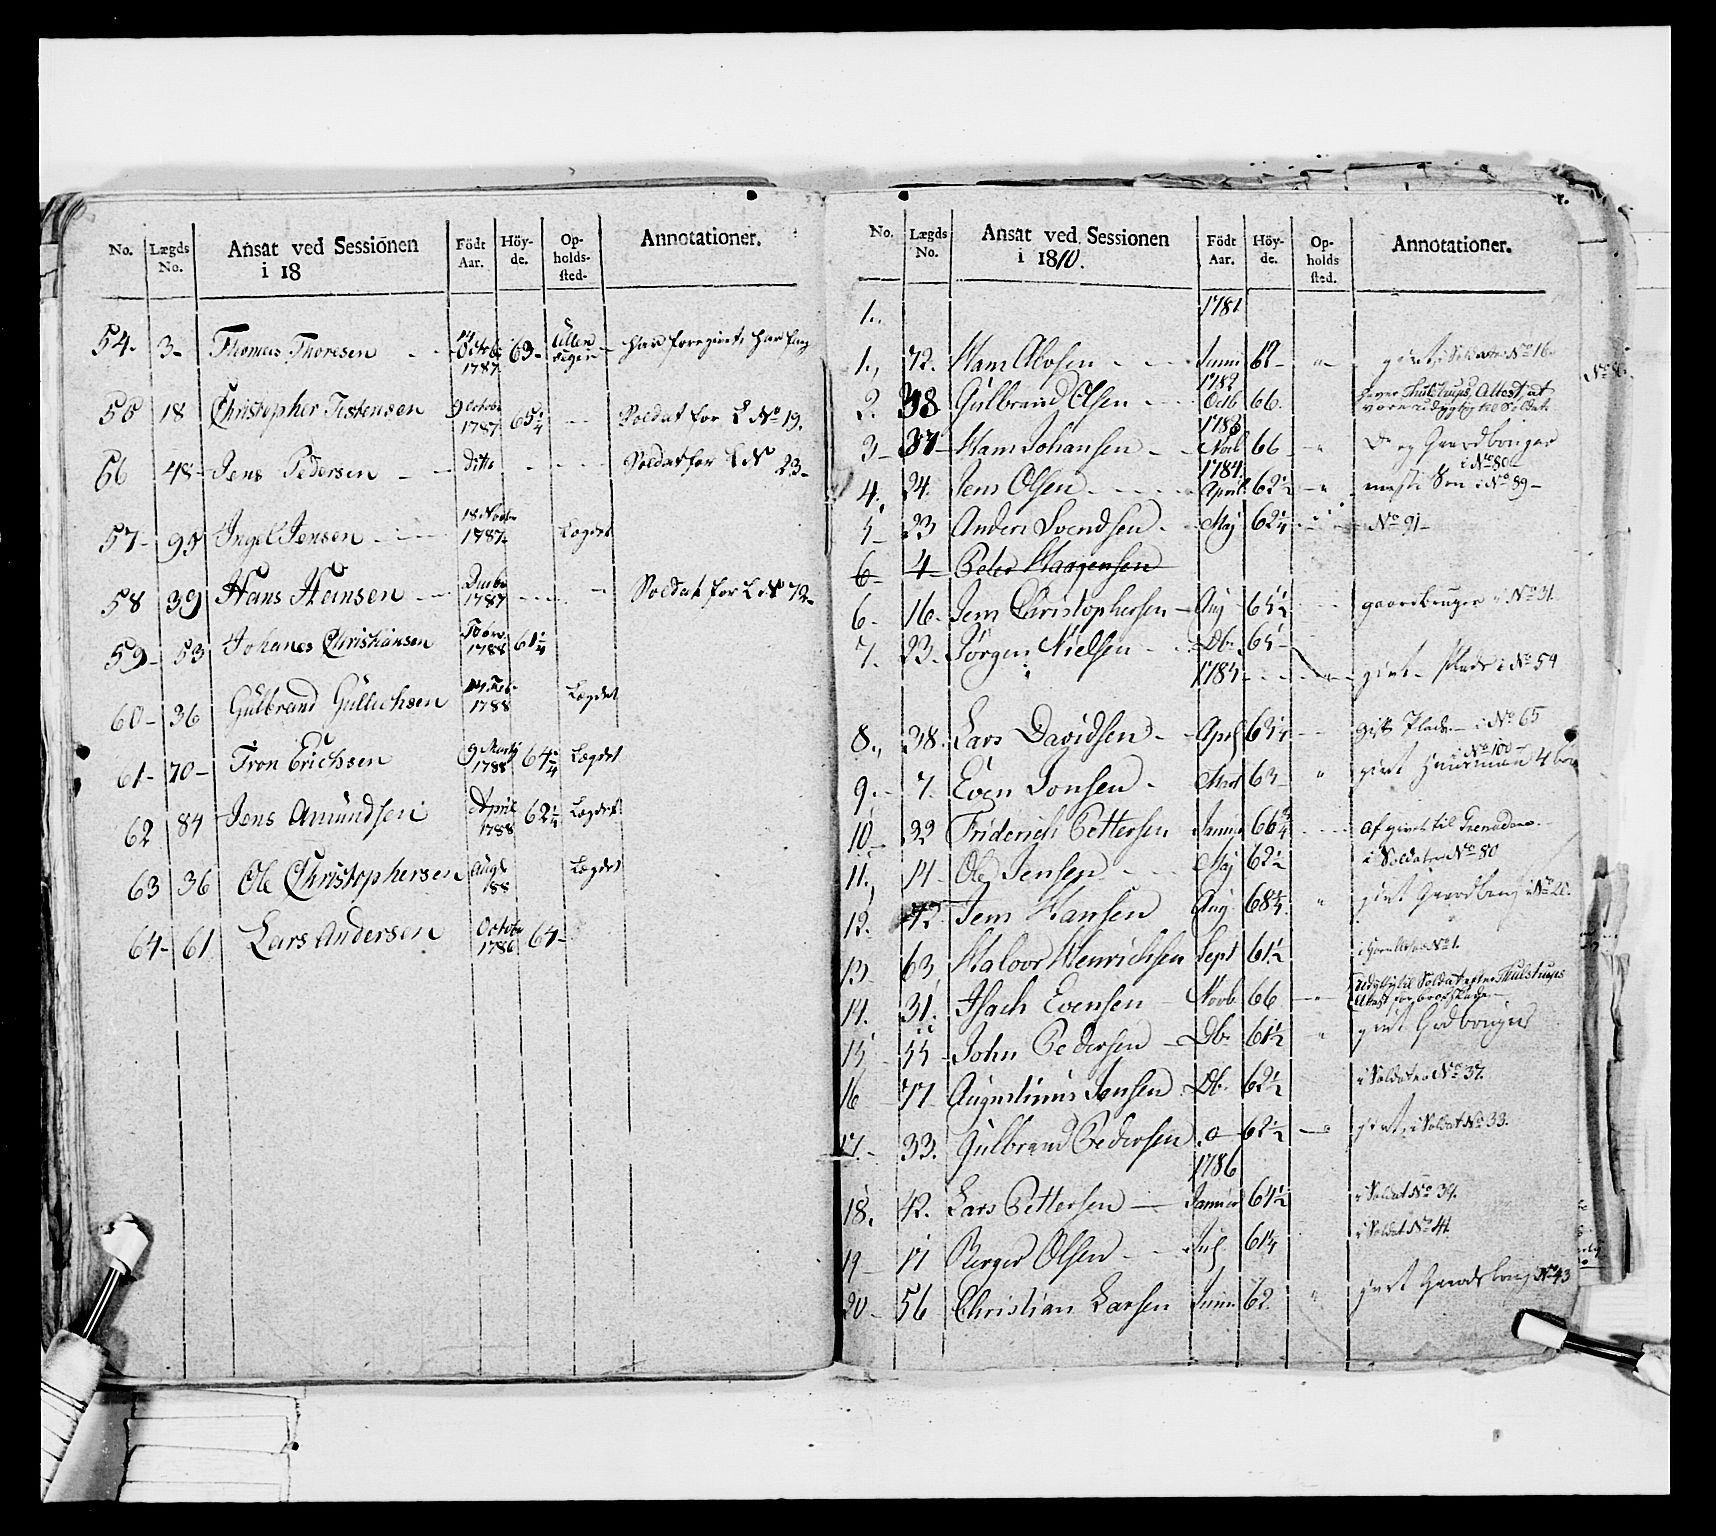 No. Lægds No. Ansat ved Sessionen i 18 Födt Aar. Höy-de. Op-holds-sted. Annotationer.
54. 3 Thomas Thoresen 14 Octob. 1787 63
55 18 Christopher Tostensen 9 Octob. 1787 65 1/4 Soldat for L No 19.
56 48 Jens Pedersen Ditto Soldat for L No 23
57 95 Ingel Jensen 18 Novbr 1787 Lægdet
58 39 Hans Hansen Decbr 1787 Soldat for L No 72
59 53 Johanes Christiansen Febr. 1788 61 1/4
60 36 Gulbrand Gullichsen Feb. 1788 Lægdet
61 70 Tron Erichsen 9 Martz 1788 64 1/4 Lægdet
62 84 Jens Amundsen April 1788 62 1/4 Lægdet
63 36 Ole Christophersen Augt 88 Lægdet
64 61 Lars Andersen Octobr 1786 64
No. Lægds No. Ansat ved Sessionen i 1810. Födt Aar. Höy-de. Op-holds sted. Annotationer.
1. 1781
1. 72. Hans Alvsen Junii 62 givt, i Soldater No 16
1782
2. 38 Gulbrand Olsen Octb 66. Thulstrups Attest, at være udygtig til Soldat
1783
3 37 Hans Johansen Novb 66 Gaardbruger i No 80
1784.
4. 24. Jens Olsen April 62 1/2 Søn i No 89
5 23 Anders Svendsen Maj 62 1/4 No 91
6 4 Peder Haagensen
6. 16. Jens Christophersen Aug 65 1/2 gaardbruger i No 31.
7. 23. Jörgen Nielsen Db. 65
1785 givt Plads i No 54
8. 38. Lars Davidsen April 63 1/4 gift Plads i No 65
9. 7. Even Jonsen Mart 63 givt Huusmand i No 100
10 22 Friderich Pettersen Janua 66 3/4 afgivet til Grenader
11. 14 Ole Jensen Maj 62 1/2 i Soldater No 80
12. 42 Jens Hansen Aug 68 1/4 givt Gaardbrug i No 20.
13 63 Halvor Henrichsen Sept 61 1/2 No 1.
14. 31. Isach Evensen Novb 66 udyktig til Soldat efter Thulstrups Attest for brokskade
15 55 John Pedersen Db. 61 1/2 givt Gdbruger
16 77 Augustinus Jensen Db. 62 1/2 i Soldater No 37.
17. 33. Gulbrand Pedersen 62 1/2 givt, i Soldat No 33.
1786
18. 42. Lars Pettersen Januar 64 1/2 i Soldat No 39.
19 17 Berger Olsen Jul. 61 1/4 i Soldat No 41.
20 56 Christian Larsen Junii 62. givt Gaardsbrug No 43